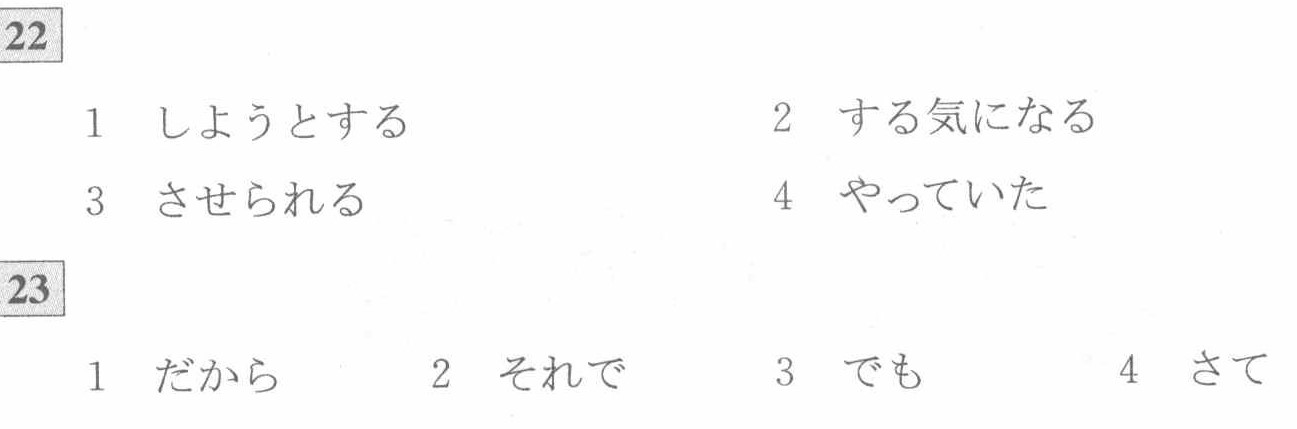 22
1 しようとする 2 する気になる
3 させられる 4 やっていた
23
1 だから 2 それで 3 でも 4 さて